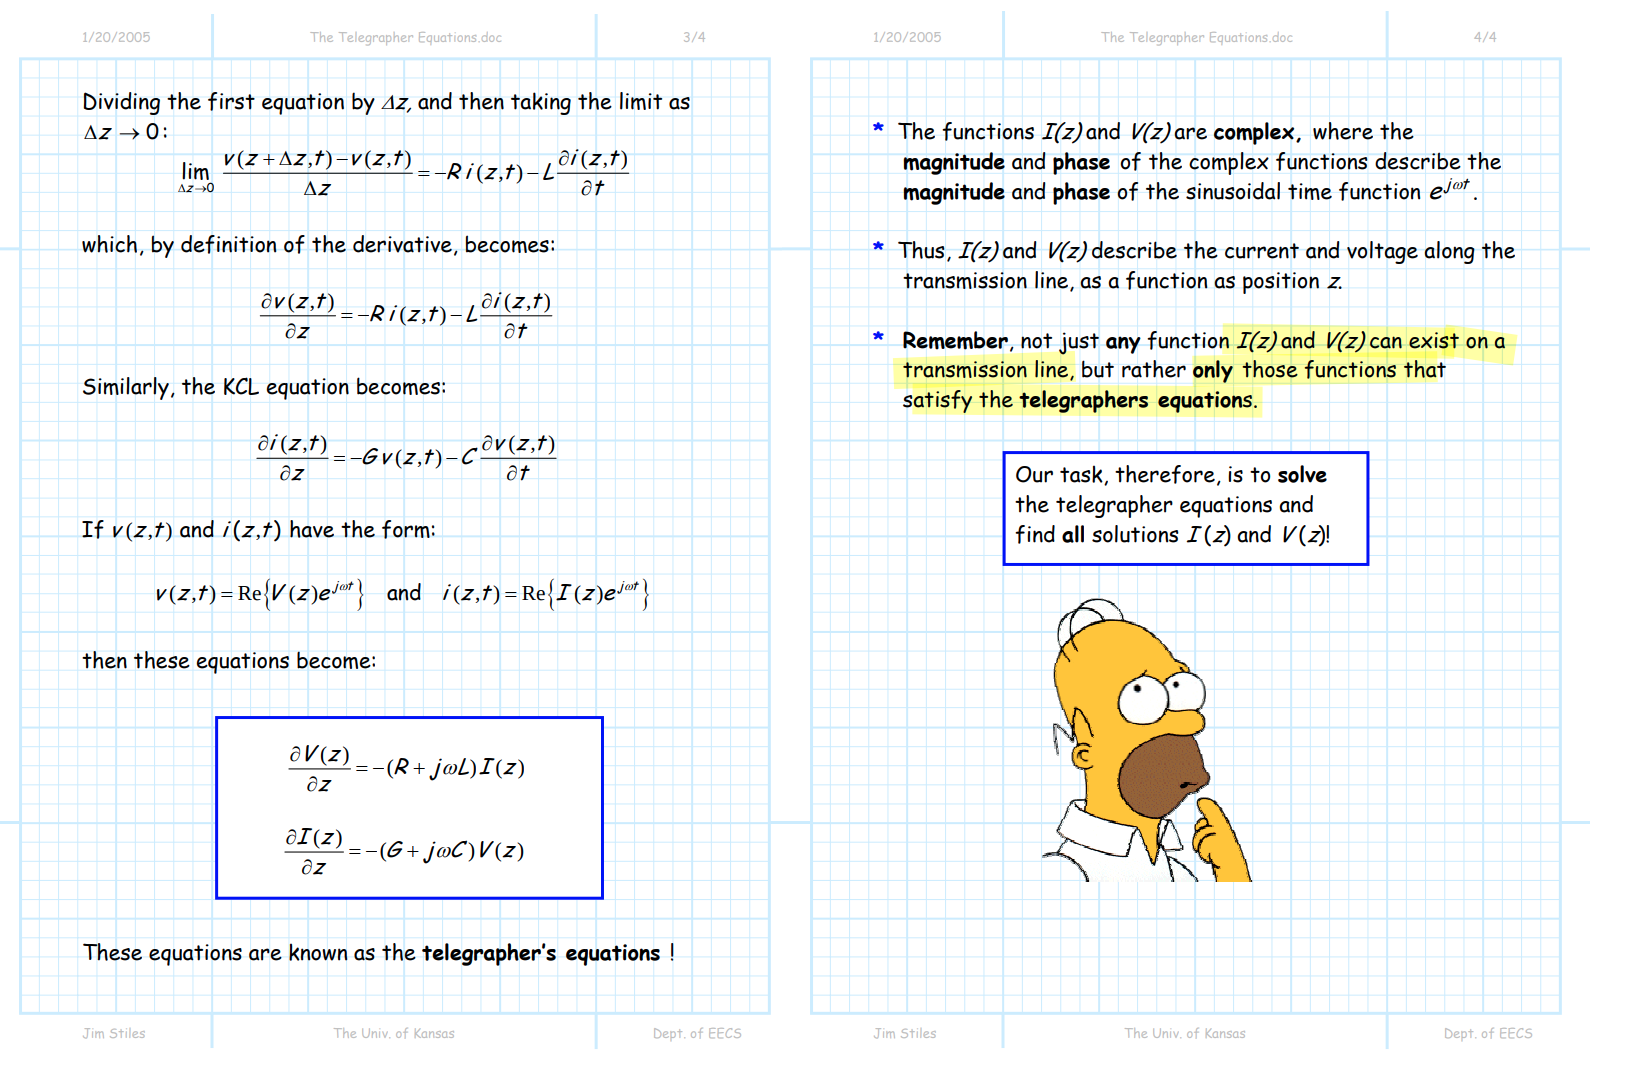 1/20/2005 The Telegrapher Equations.doc 3/4
Dividing the first equation by Δz, and then taking the limit as
Δz → 0:
lim_{Δz→0} (v(z+Δz,t) − v(z,t))/Δz = −R i(z,t) − L ∂i(z,t)/∂t
which, by definition of the derivative, becomes:
∂v(z,t)/∂z = −R i(z,t) − L ∂i(z,t)/∂t
Similarly, the KCL equation becomes:
∂i(z,t)/∂z = −G v(z,t) − C ∂v(z,t)/∂t
If v(z,t) and i(z,t) have the form:
v(z,t) = Re{V(z)e^{jωt}} and i(z,t) = Re{I(z)e^{jωt}}
then these equations become:
∂V(z)/∂z = −(R + jωL) I(z)
∂I(z)/∂z = −(G + jωC) V(z)
These equations are known as the telegrapher's equations !
Jim Stiles The Univ. of Kansas Dept. of EECS
1/20/2005 The Telegrapher Equations.doc 4/4
* The functions I(z) and V(z) are complex, where the
magnitude and phase of the complex functions describe the
magnitude and phase of the sinusoidal time function e^{jωt}.
* Thus, I(z) and V(z) describe the current and voltage along the
transmission line, as a function as position z.
* Remember, not just any function I(z) and V(z) can exist on a
transmission line, but rather only those functions that
satisfy the telegraphers equations.
Our task, therefore, is to solve
the telegrapher equations and
find all solutions I(z) and V(z)!
Jim Stiles The Univ. of Kansas Dept. of EECS